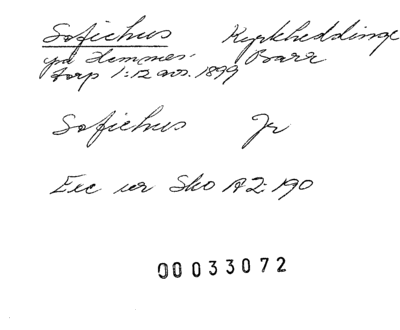 Sofiehus Kyrkheddinge
på Hemmes- Bara
torp 1:12 avs. 1899
Sofiehus Jr
Exc ur Sko A2:190
00033072